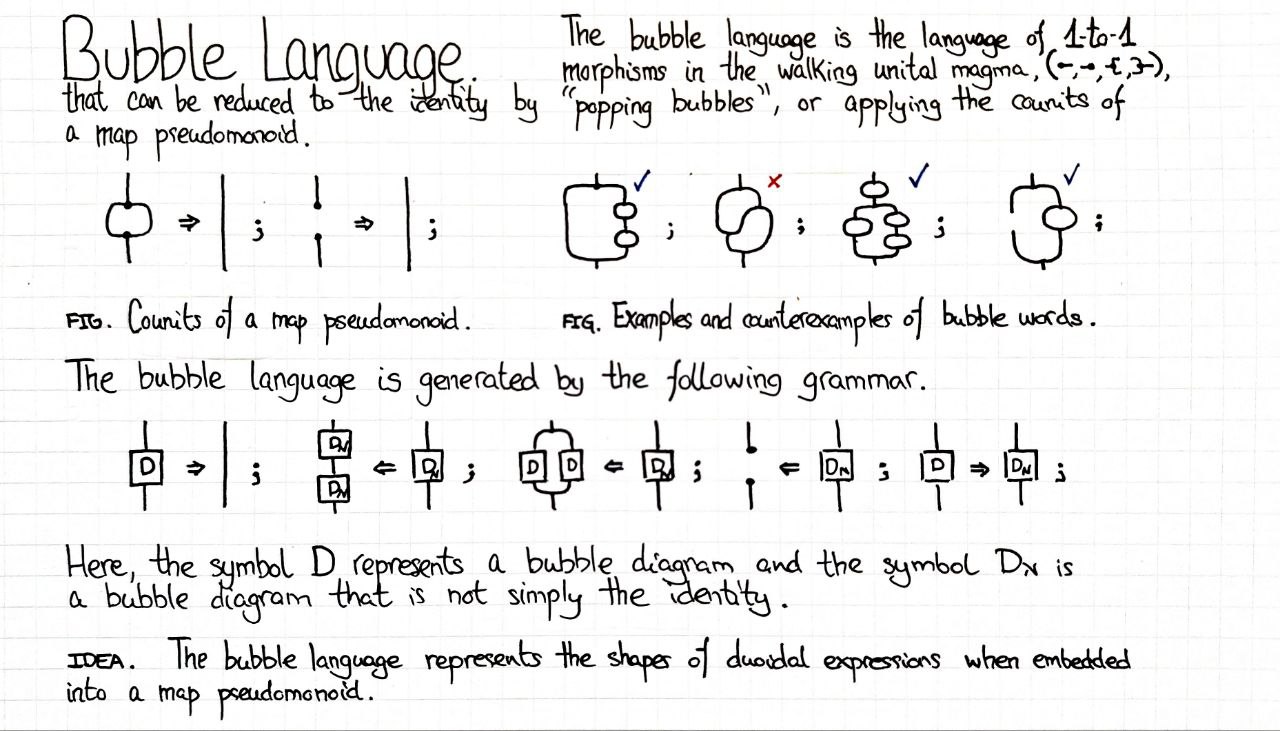 Bubble Language.
The bubble language is the language of 1-to-1
morphisms in the walking unital magma,
that can be reduced to the identity by "popping bubbles", or applying the counits of
a map pseudomonoid.
⇒ ; ⇒ ;
✓ ; × ; ✓ ; ✓ ;
FIG. Counits of a map pseudomonoid.
FIG. Examples and counterexamples of bubble words.
The bubble language is generated by the following grammar.
D ⇒ ; DN DN ⇐ DN ; D D ⇐ DN ; ⇐ DN ; D ⇒ DN ;
Here, the symbol D represents a bubble diagram and the symbol DN is
a bubble diagram that is not simply the identity.
IDEA. The bubble language represents the shapes of duoidal expressions when embedded
into a map pseudomonoid.